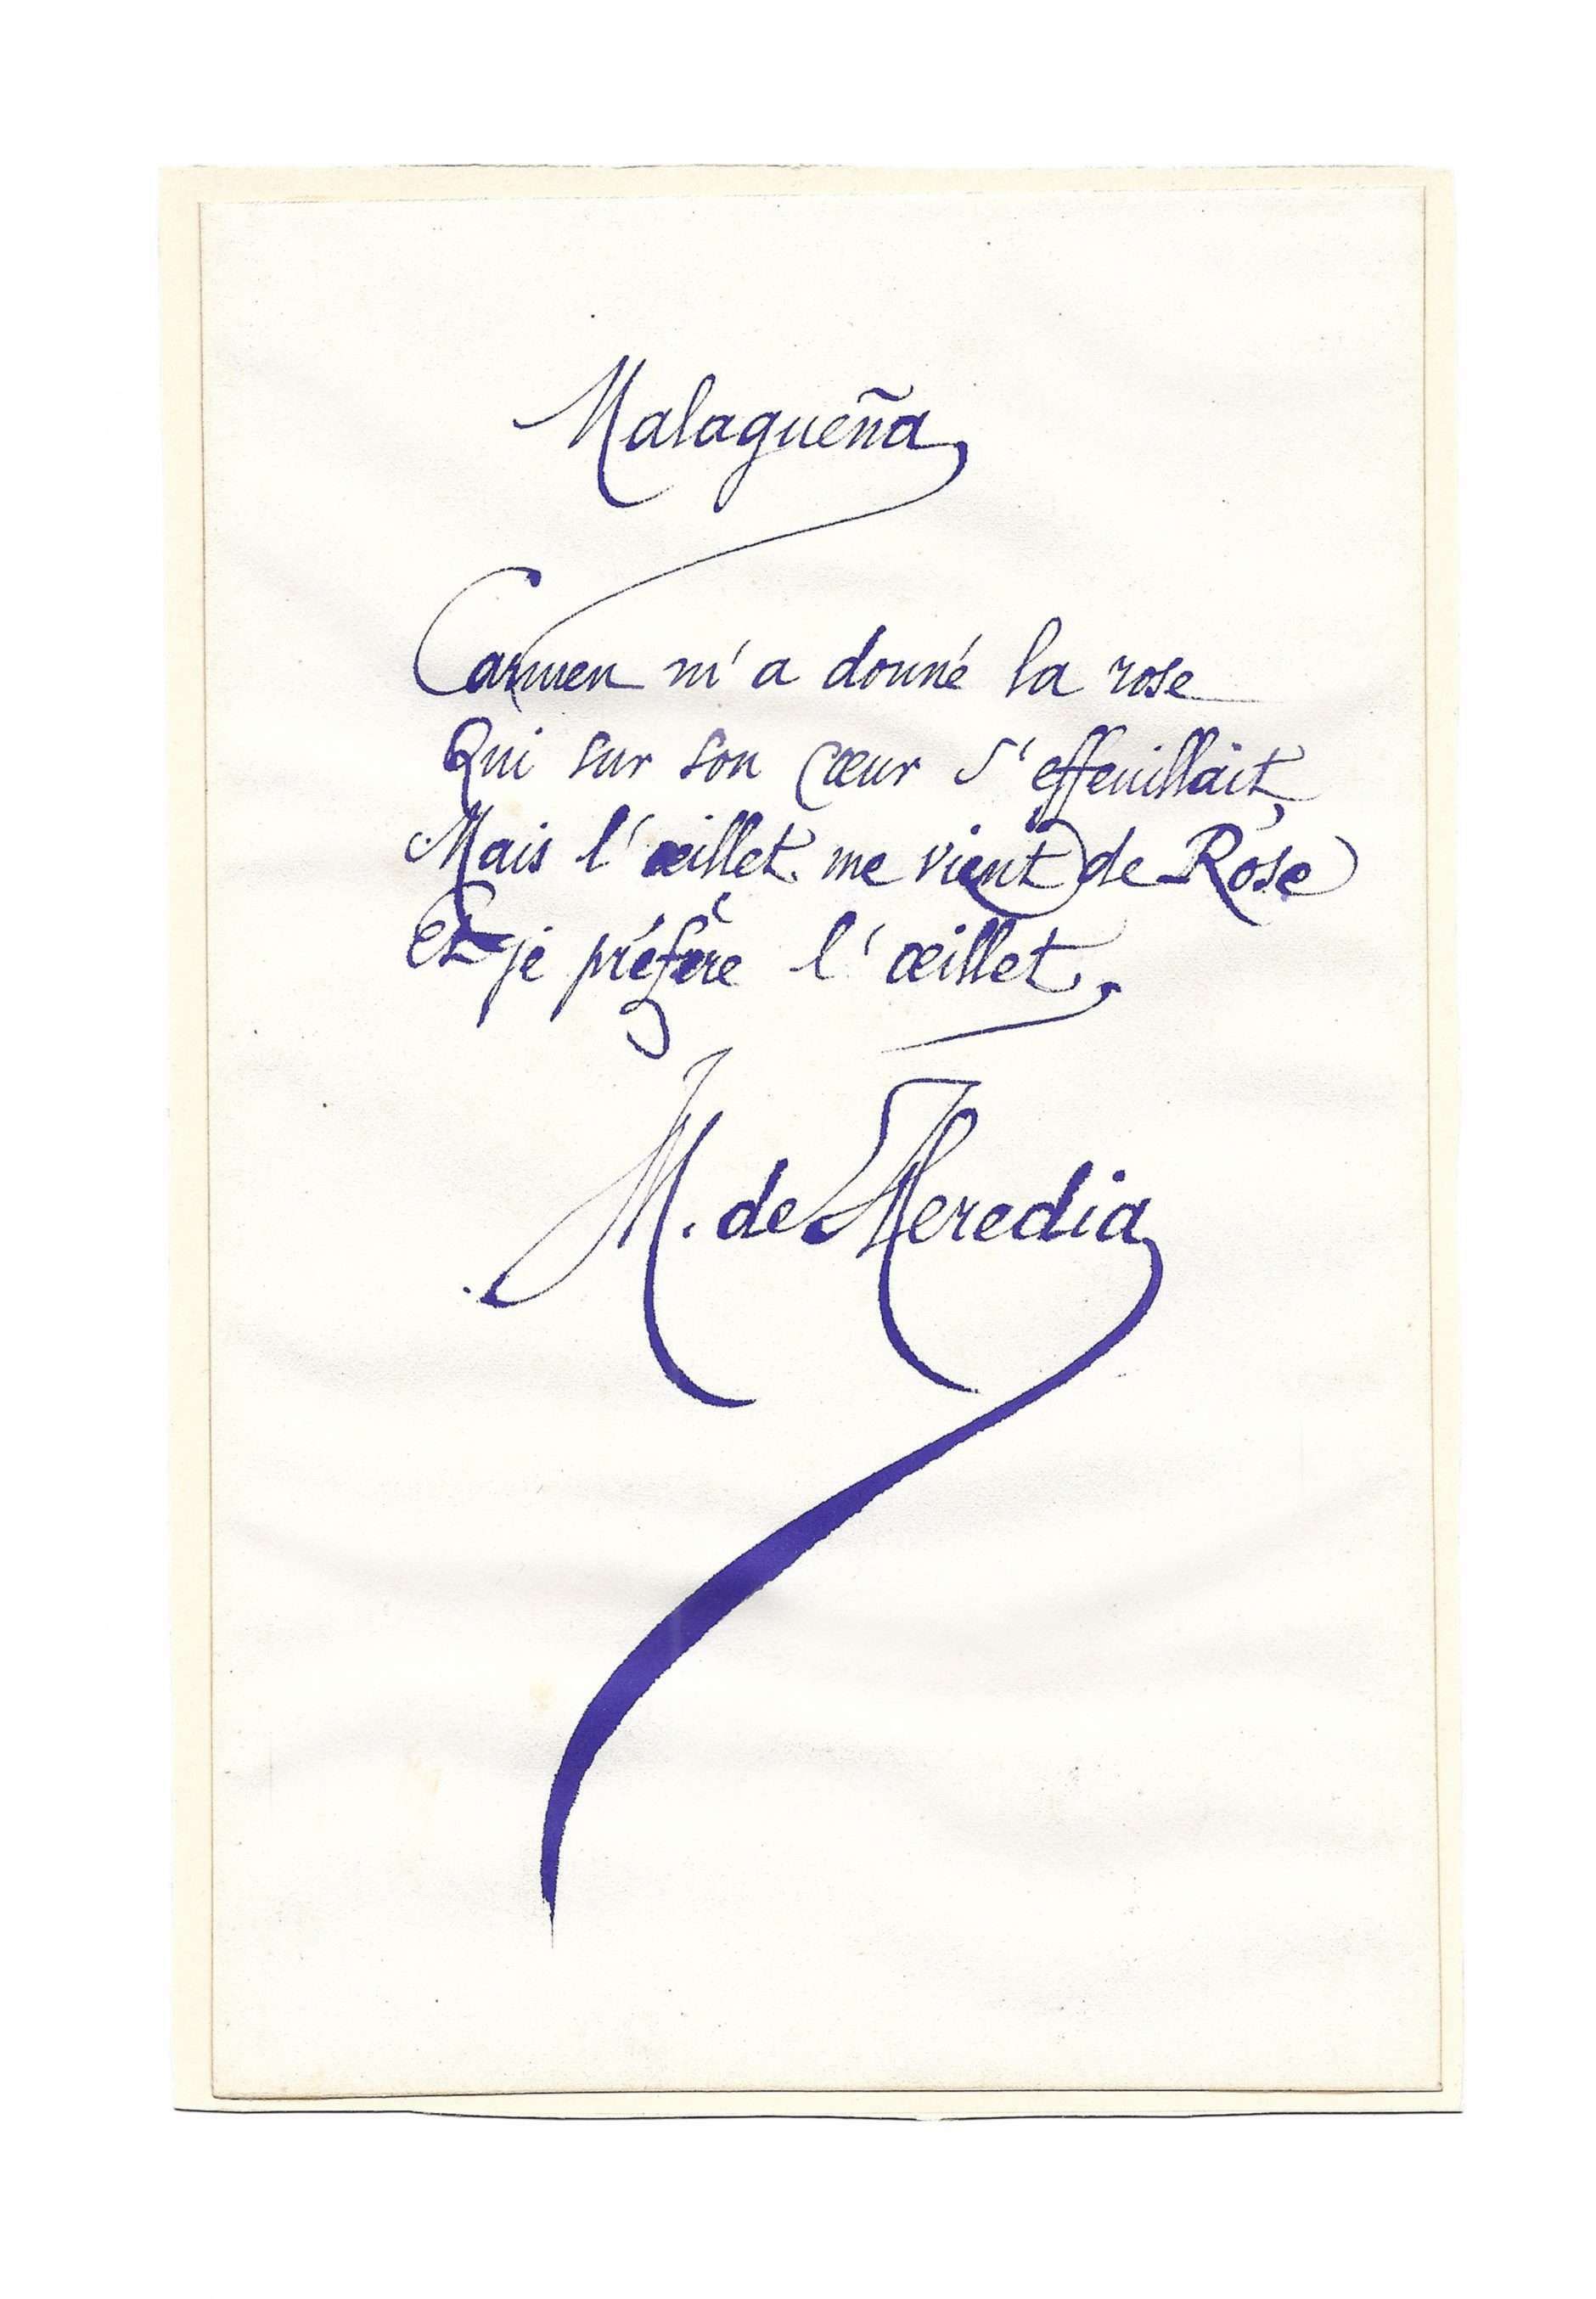 Malagueña
Carmen m'a donné la rose
Qui sur son cœur s'effeuillait,
Mais l'œillet me vient de Rose
Et je préfère l'œillet.
M. de Heredia